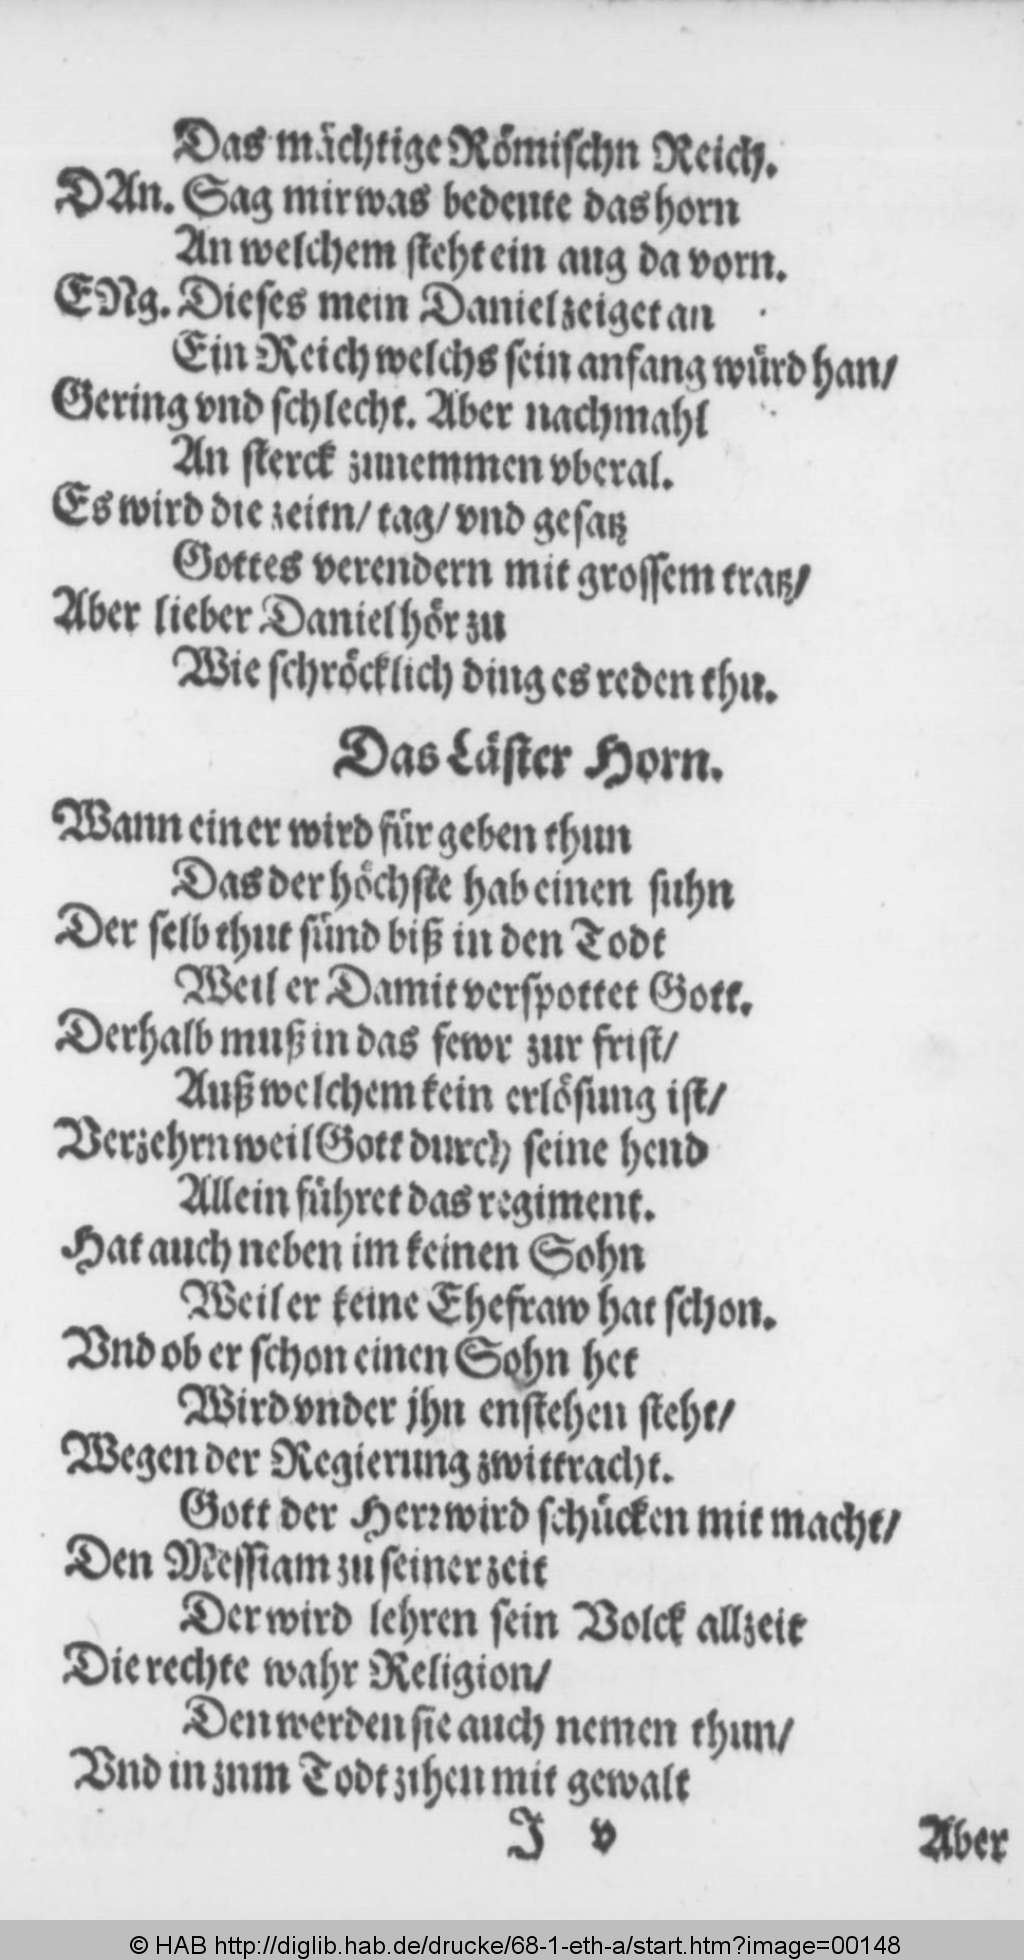 Das mächtige Römischn Reich.
DAn. Sag mir was bedeute das horn
An welchem steht ein aug da vorn.
ENg. Dieses mein Daniel zeiget an
Ein Reich welchs sein anfang würd han/
Gering vnd schlecht. Aber nachmahl
An sterck zunemmen vberal.
Es wird die zeitn/ tag/ vnd gesatz
Gottes verendern mit grossem tratz/
Aber lieber Daniel hör zu
Wie schröcklich ding es reden thu.
Das Läster Horn.
Wann einer wird für geben thun
Das der höchste hab einen suhn
Der selb thut sünd biß in den Todt
Weil er Damit verspottet Gott.
Derhalb muß in das fewr zur frist/
Auß welchem kein erlösung ist/
Verzehrn weil Gott durch seine hend
Allein führet das regiment.
Hat auch neben im keinen Sohn
Weil er keine Ehefraw hat schon.
Vnd ob er schon einen Sohn het
Wird vnder jhn enstehen steht/
Wegen der Regierung zwittracht.
Gott der Herr wird schücken mit macht/
Den Messiam zu seiner zeit
Der wird lehren sein Volck allzeit
Die rechte wahr Religion/
Den werden sie auch nemen thun/
Vnd in zum Todt zihen mit gewalt
J v Aber
© HAB http://diglib.hab.de/drucke/68-1-eth-a/start.htm?image=00148